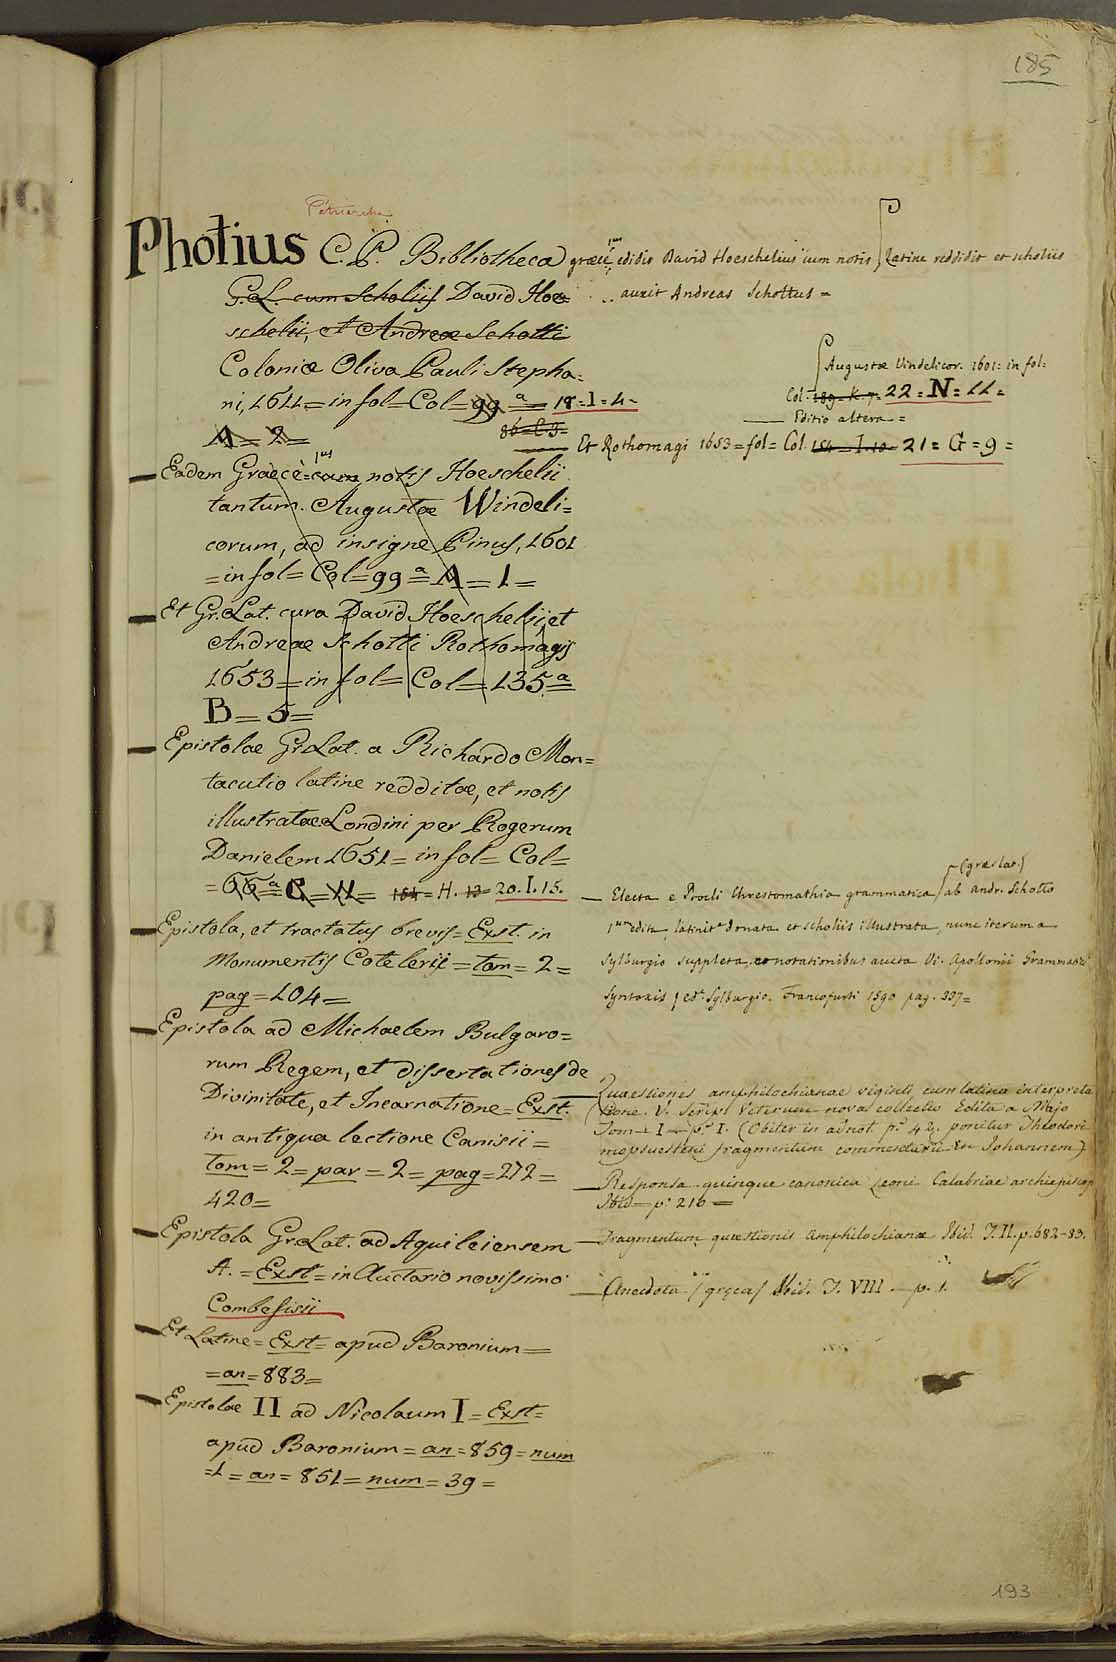 185
Patriarcha
Photius C. P. Bibliotheca graecè 1us edidit David Hoeschelius cum notis, Latine reddidit et scholiis
auxit Andreas Schottus =
G. L. cum Scholiis David Hoe=
schelii, et Andreae Schotti
Coloniae Oliva Pauli Stepha=
ni, 1611 = in fol = Col = 99 a = 18 = I = 4 =
A = 2 =
86 = C. 9 =
Augustae Vindelicor. 1601 = in fol =
Col. 189 = K. 7 = 22 = N = 11 =
Editio altera =
Et Rothomagi 1653 = fol = Col. 154 = I. 10 = 21 = G = 9 =
Eadem Graecè = cum 1us notis Hoeschelii
tantum. Augustae Windeli=
corum, ad insigne Pinus, 1601
= in fol = Col = 99 a = A = 1 =
Et Gr. Lat. cura David Hoeschelii, et
Andreae Schotti Rothomagij
1653 = in fol = Col = 135 a =
B = 5 =
Epistolae Gr. Lat. a Richardo Mon=
tacutio latine redditae, et notis
illustratae. Londini per Rogerum
Danielem 1651 = in fol = Col =
= 66 a = C = 11 = 164 = H. 13 = 20. I. 15.
Epistola, et tractatus brevis = Exst. in
Monumentis Cotelerij = tom = 2 =
pag = 104 =
Epistola ad Michaelem Bulgaro=
rum Regem, et dissertationes de
Divinitate, et Incarnatione = Exst.
in antiqua lectione Canisii =
tom = 2 = par = 2 = pag = 272 =
420 =
Epistola Gr. Lat. ad Aquileiensem
A. = Exst = in Auctario novissimo
Combefisii
Et Latine = Exst = apud Baronium =
= an = 883 =
Epistolae II ad Nicolaum I = Exst =
apud Baronium = an = 859 = num
= 1 = an = 851 = num = 39 =
(graelat.)
Electa e Procli Chrestomathia grammatica ab Andr. Schotto
1um edita, latinit. donata et scholiis illustrata, nunc iterum a
Sylburgio suppleta, et notationibus aucta. Vi. Apollonii Grammatici
Syntaxis, ed. Sylburgio. Francofurti 1590 pag. 337 =
Quaestiones amphilochianae viginti cum latina interpreta
tione. V. Script. Veterum nova collectio Edita a Majo
Tom = I = p. I. (Obiter in adnot. p. 42. ponitur Theodori
mopsuesteni fragmentum commentarii in Johannem)
Responsa quinque canonica Leoni Calabriae archiepiscop
Ibid = p. 216 =
Fragmentum quaestionis Amphilochianae Ibid. T. II. p. 682-83.
Anecdota (graeca) Ibid. T. VIII = p. 1.
193